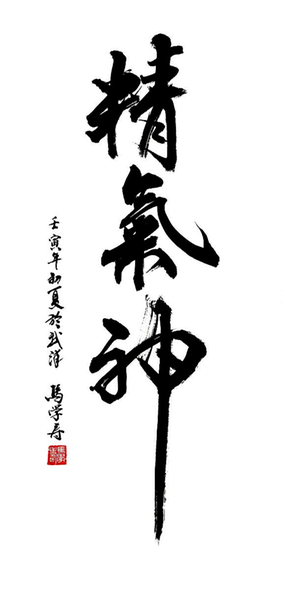 精氣神
壬寅年初夏於武漢 馬学寿